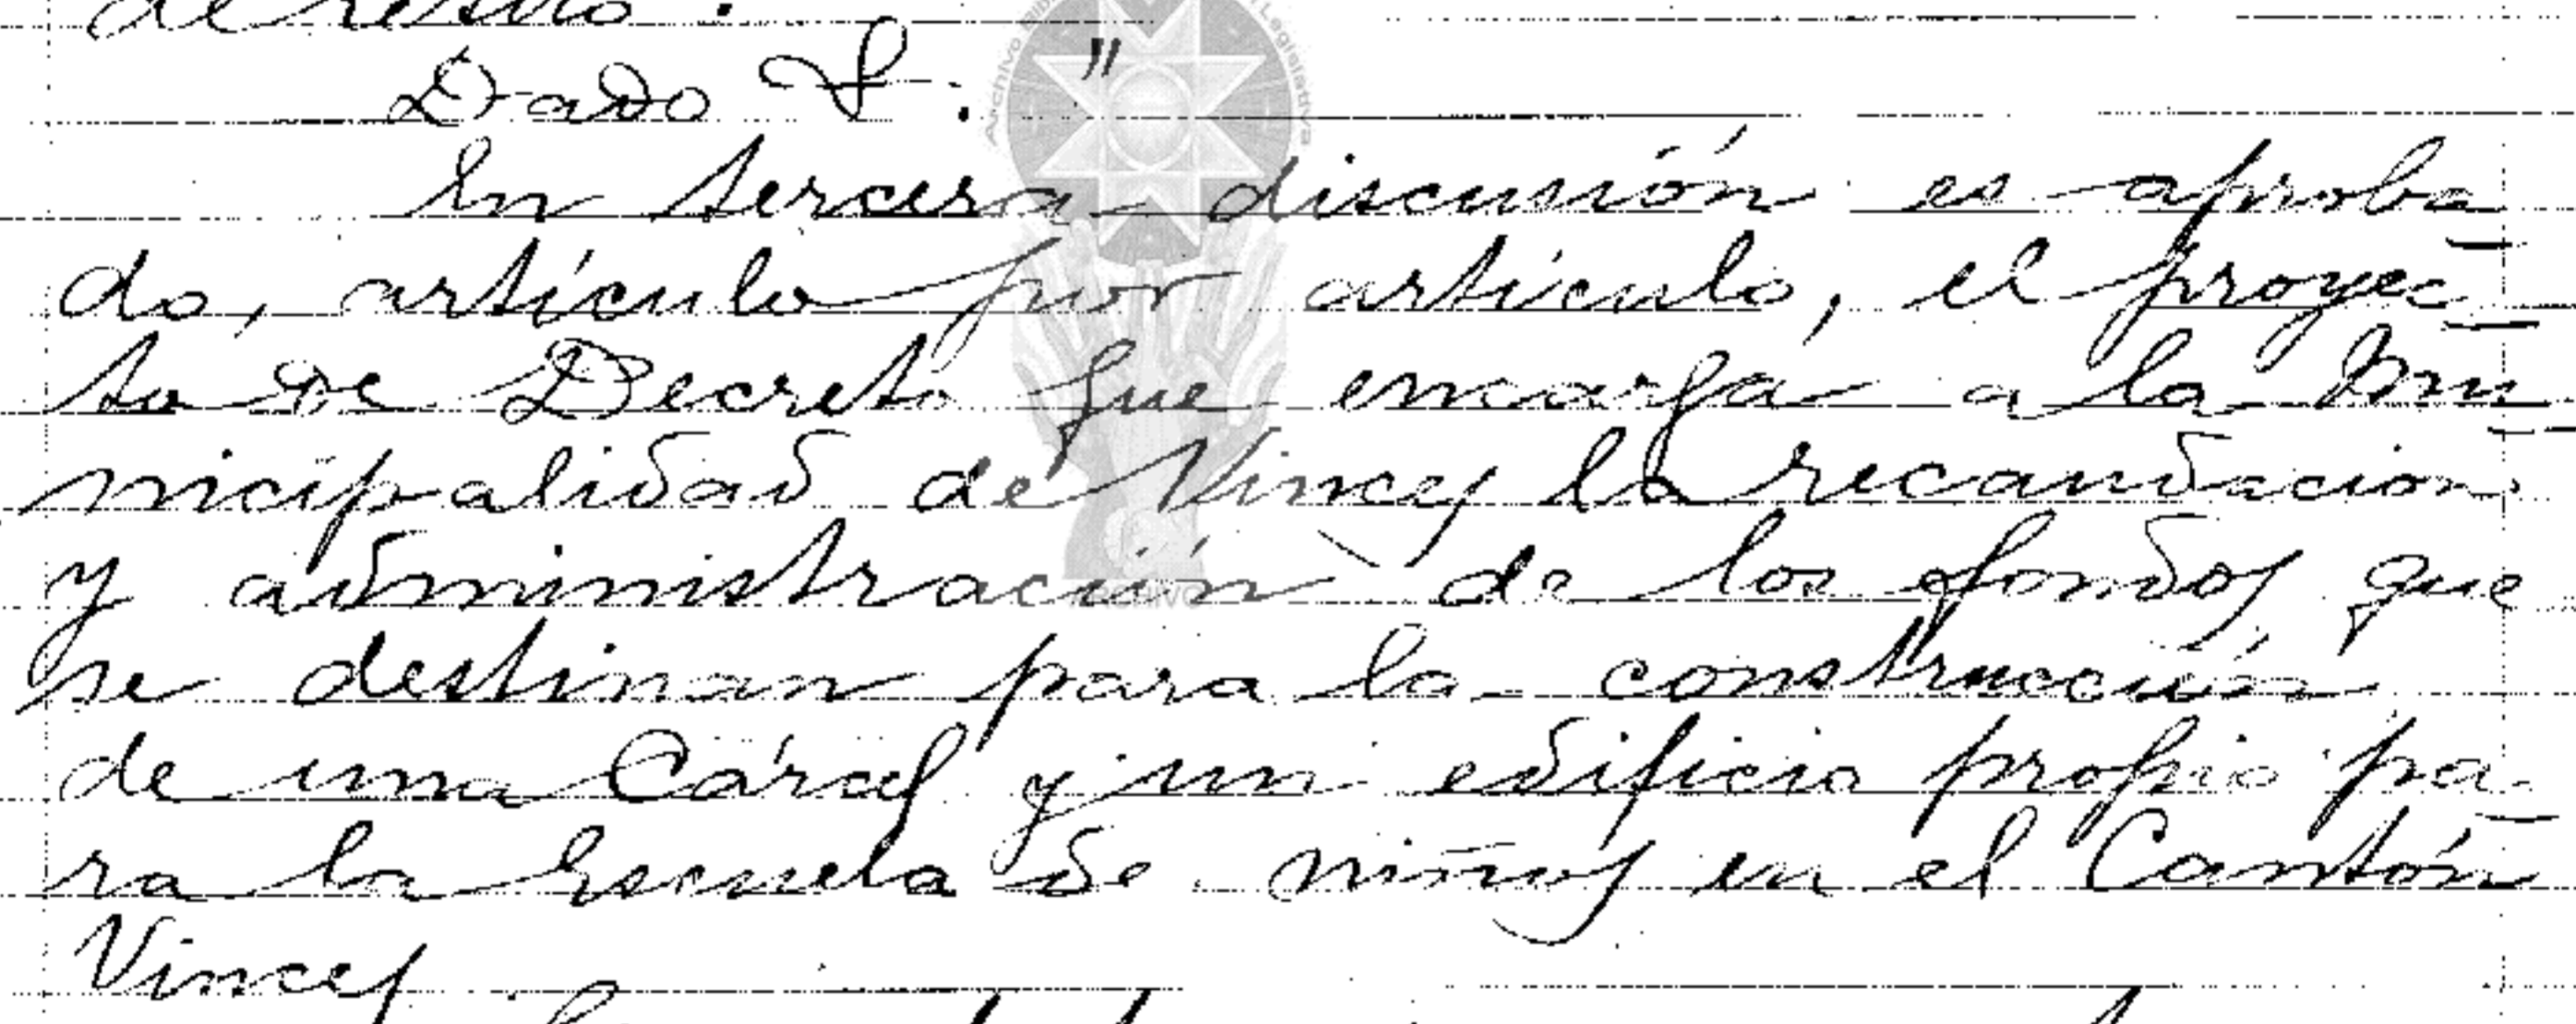 Dado &."
En tercera discusión es aproba-
do, artículo por artículo, el proyec-
to de Decreto que encarga a la Mu-
nicipalidad de Vinces la recaudación
y administración de los fondos que
se destinan para la construcción
de una Cárcel y un edificio propio pa-
ra la Escuela de niños en el Cantón
Vinces